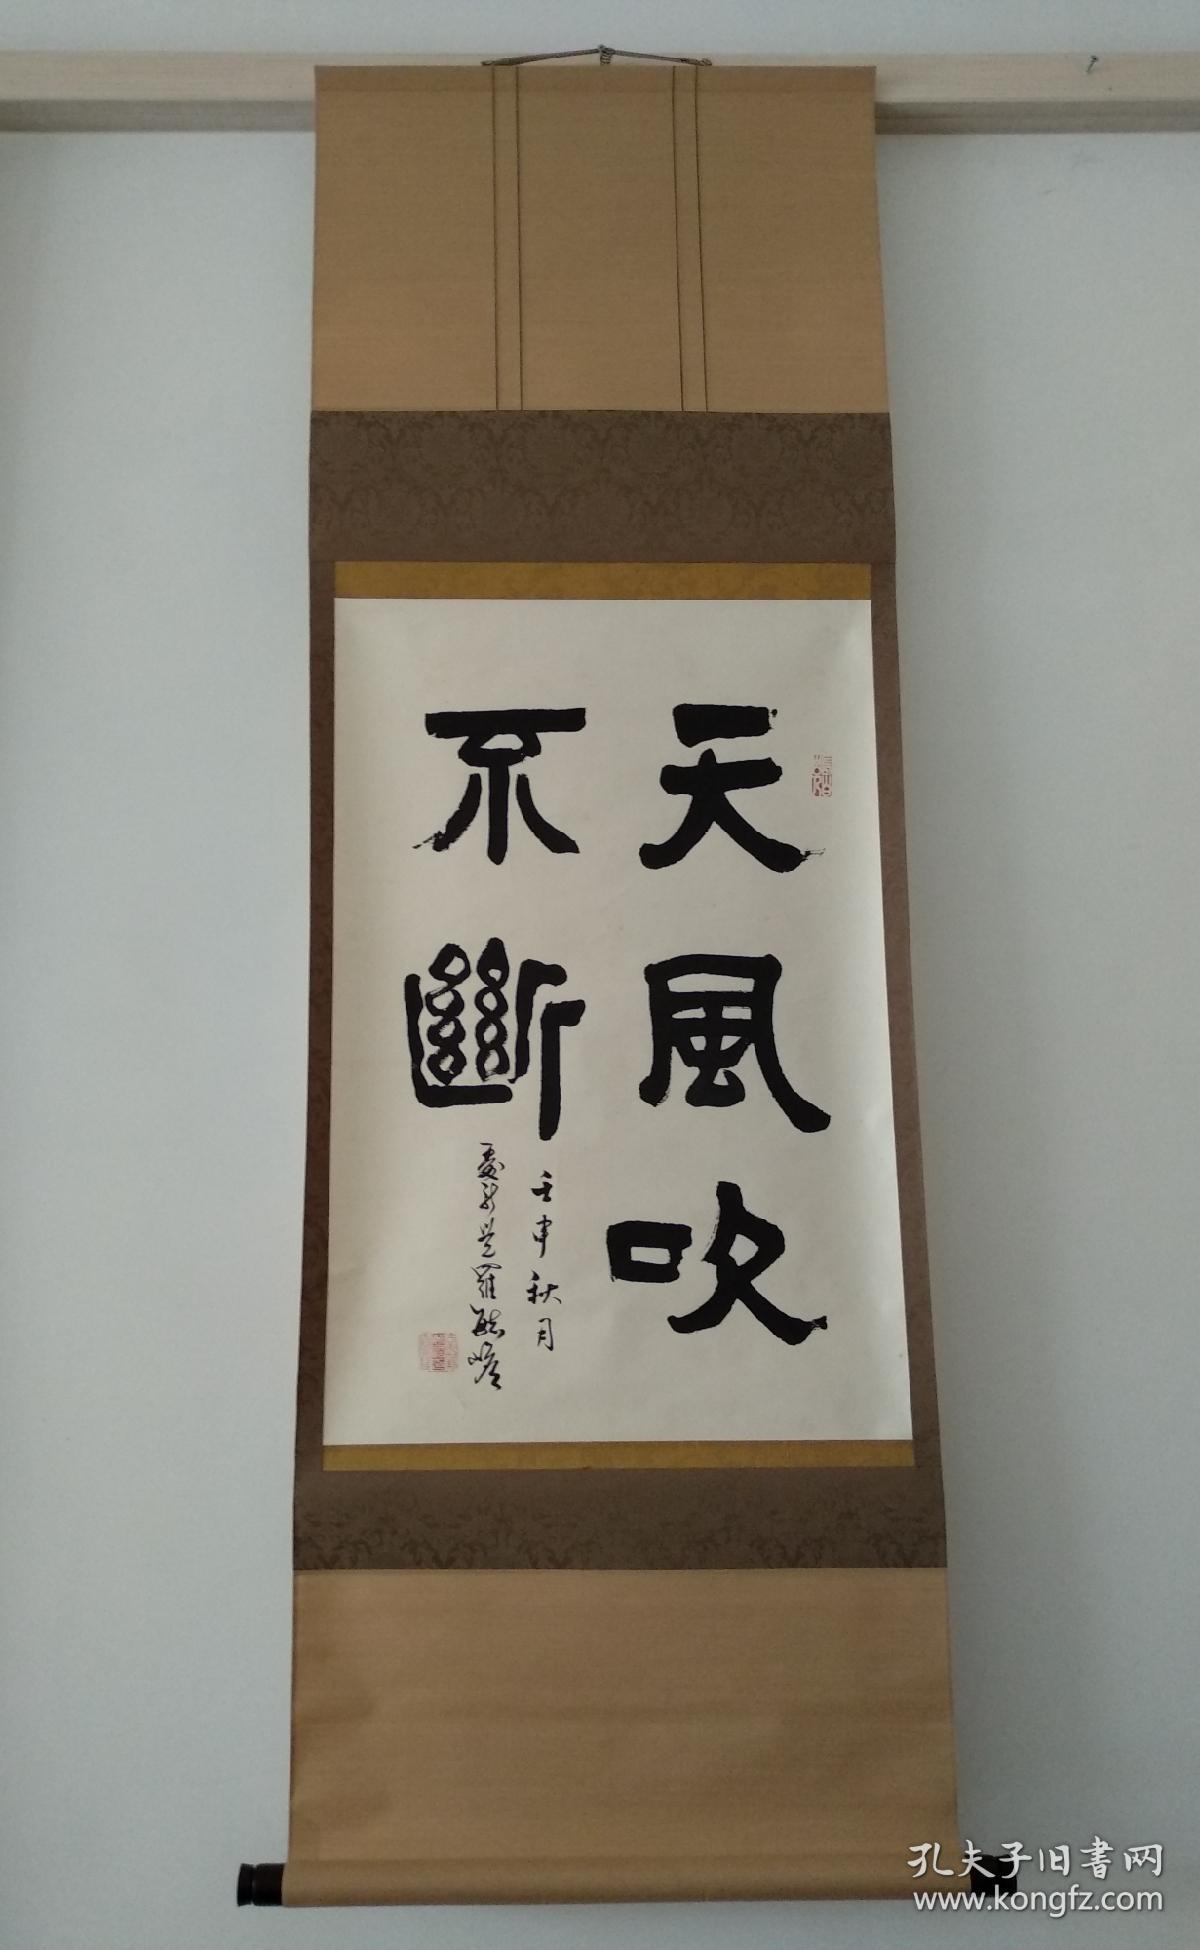 天風吹
不斷
壬申秋月
愛新覺羅毓嶦
孔夫子旧書网
www.kongfz.com